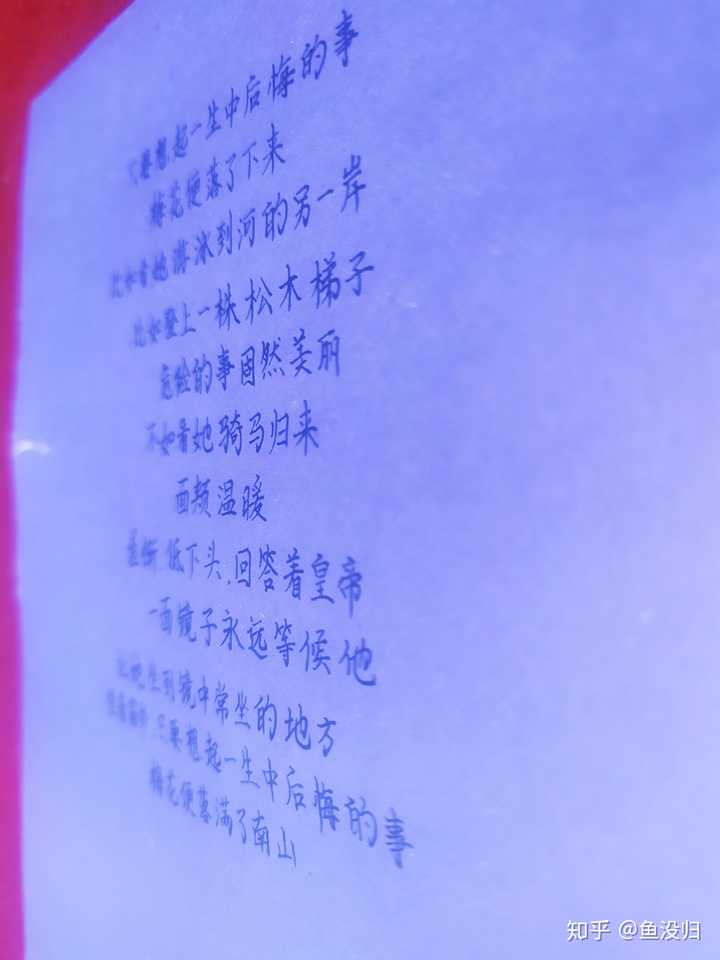 只要想起一生中后悔的事
梅花便落了下来
比如看她游泳到河的另一岸
比如登上一株松木梯子
危险的事固然美丽
不如看她骑马归来
面颊温暖
羞惭,低下头,回答着皇帝
一面镜子永远等候他
让她坐到镜中常坐的地方
望着窗外,只要想起一生中后悔的事
梅花便落满了南山
知乎 @鱼没归